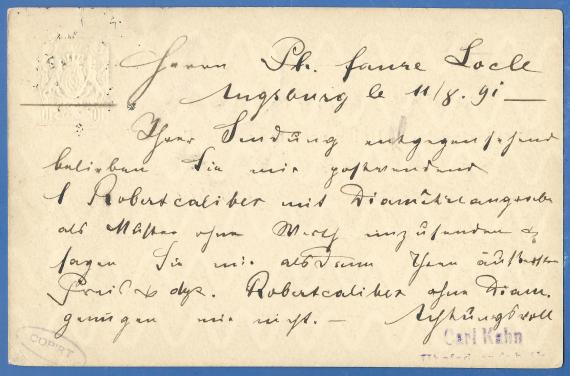 Herrn Ph. Faure Locle
Augsburg le 11/8. 91
Ihrer Sendung entgegensehend
belieben Sie mir postwendend
1 Robertcaliber mit
als Muster ohne Werth einzusenden &
sagen Sie mir alsdann Ihren äußersten
Preis Robertcaliber ohne Diam.
genügen mir nicht. — Achtungsvoll
Carl Kahn
COPIRT